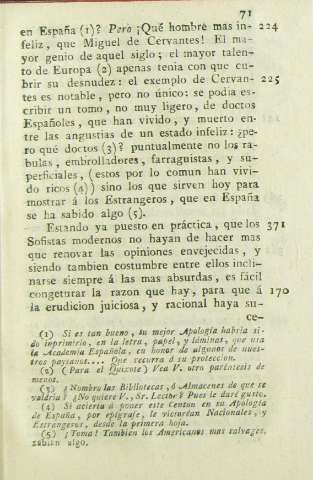 71
en España (1)? Pero ¡Qué hombre mas in- 224
feliz, que Miguel de Cervantes! El ma-
yor genio de aquel siglo; el mayor talen-
to de Europa (2) apenas tenia con que cu-
brir su desnudez: el exemplo de Cervan- 225
tes es notable, pero no único: se podia es-
cribir un tomo, no muy ligero, de doctos
Españoles, que han vivido, y muerto en-
tre las angustias de un estado infeliz: ¿pe-
ro qué doctos (3)? puntualmente no los ra-
bulas, embrolladores, farraguistas, y su-
perficiales, (estos por lo comun han vivi-
do ricos (4)) sino los que sirven hoy para
mostrar á los Estrangeros, que en España
se ha sabido algo (5).
Estando ya puesto en práctica, que los 371
Sofistas modernos no hayan de hacer mas
que renovar las opiniones envejecidas, y
siendo tambien costumbre entre ellos incli-
narse siempre á las mas absurdas, es fácil
congeturar la razon que hay, para que á 170
la erudicion juiciosa, y racional haya su-
ce-
(1) Si es tan bueno, su mejor Apología habria si-
do imprimirlo, en la letra, papel, y láminas, que usa
la Academia Española, en honor de algunos de nues-
tros paysanos.... Que recurra á su proteccion.
(2) (Para el Quixote) Vea V. otro parentesis de
menos.
(3) ¿Nombro las Bibliotecas, ó Almacenes de que se
valdria? ¿No quiere V., Sr. Lector? Pues le daré gusto.
(4) Si acierta á poner este Centon en su Apología
de España, por epígrafe, le vicorean Nacionales, y
Estrangeros, desde la primera hoja.
(5) ¡Toma! Tambien los Americanos mas salvages,
sabian algo.